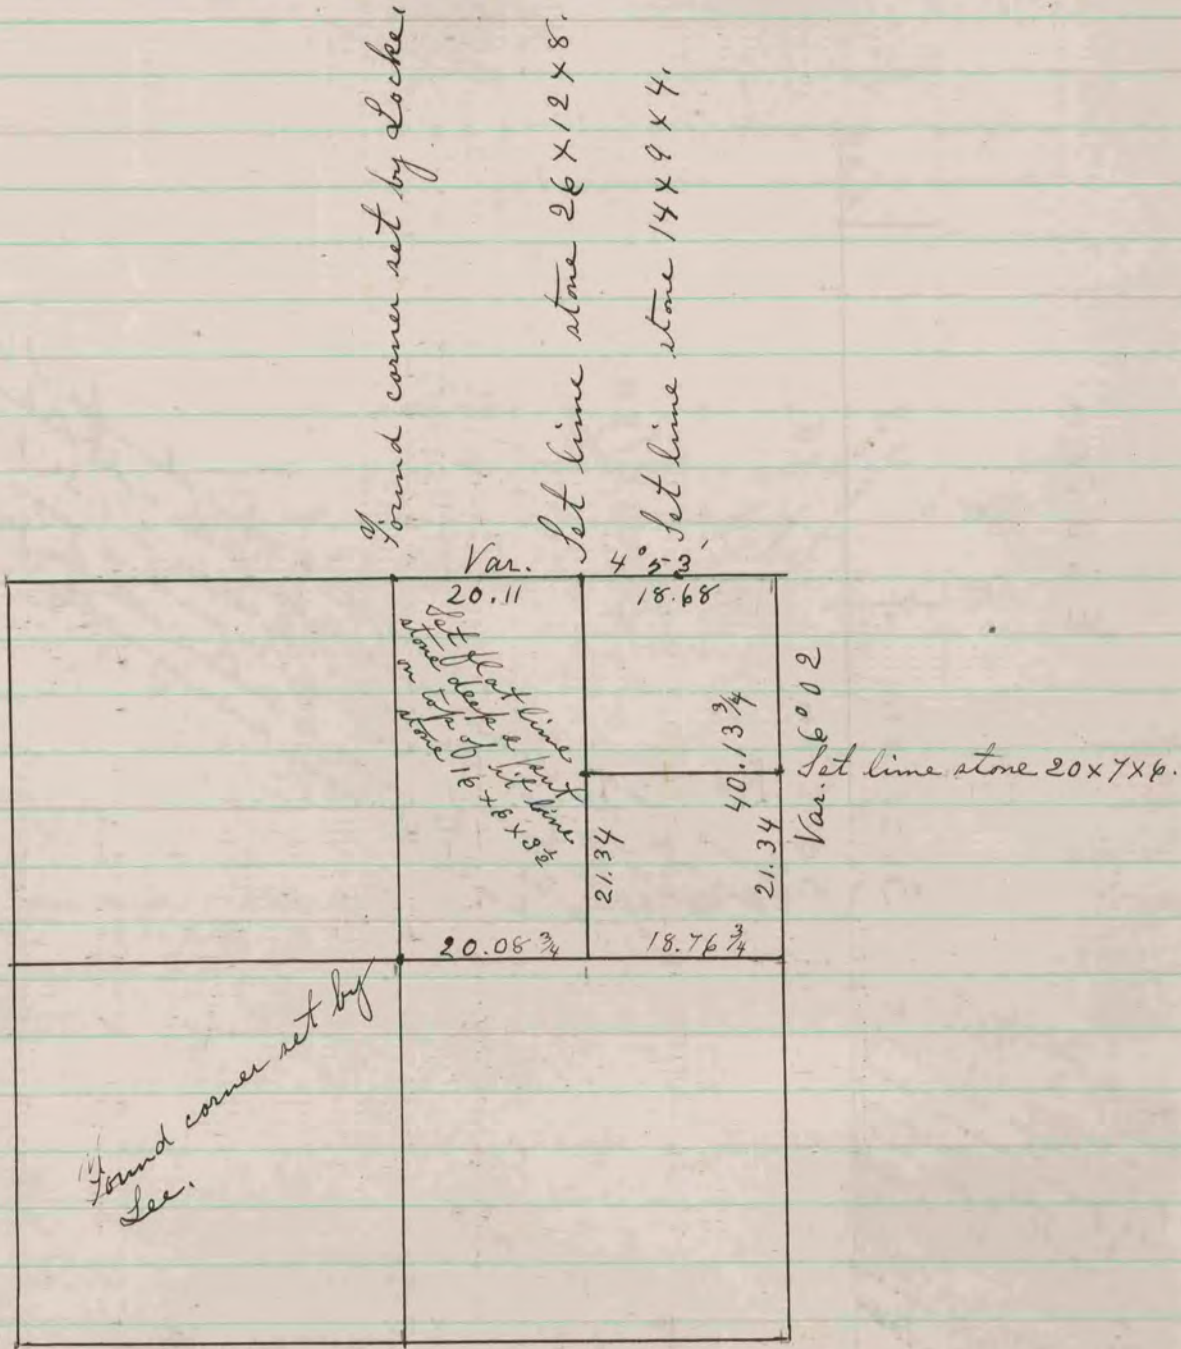 Found corner set by Locke
Set lime stone 26 x 12 x 8.
Set lime stone 14 x 9 x 4.
Var. 4° 53'
20.11
18.68
Set flat lime
stone deep & put
on top of it lime
stone 16 x 6 x 3½
40.13 ¾
Var. 6° 02
Set lime stone 20 x 7 x 6.
21.34
21.34
20.08 ¾
18.76 ¾
Found corner set by
Lee.